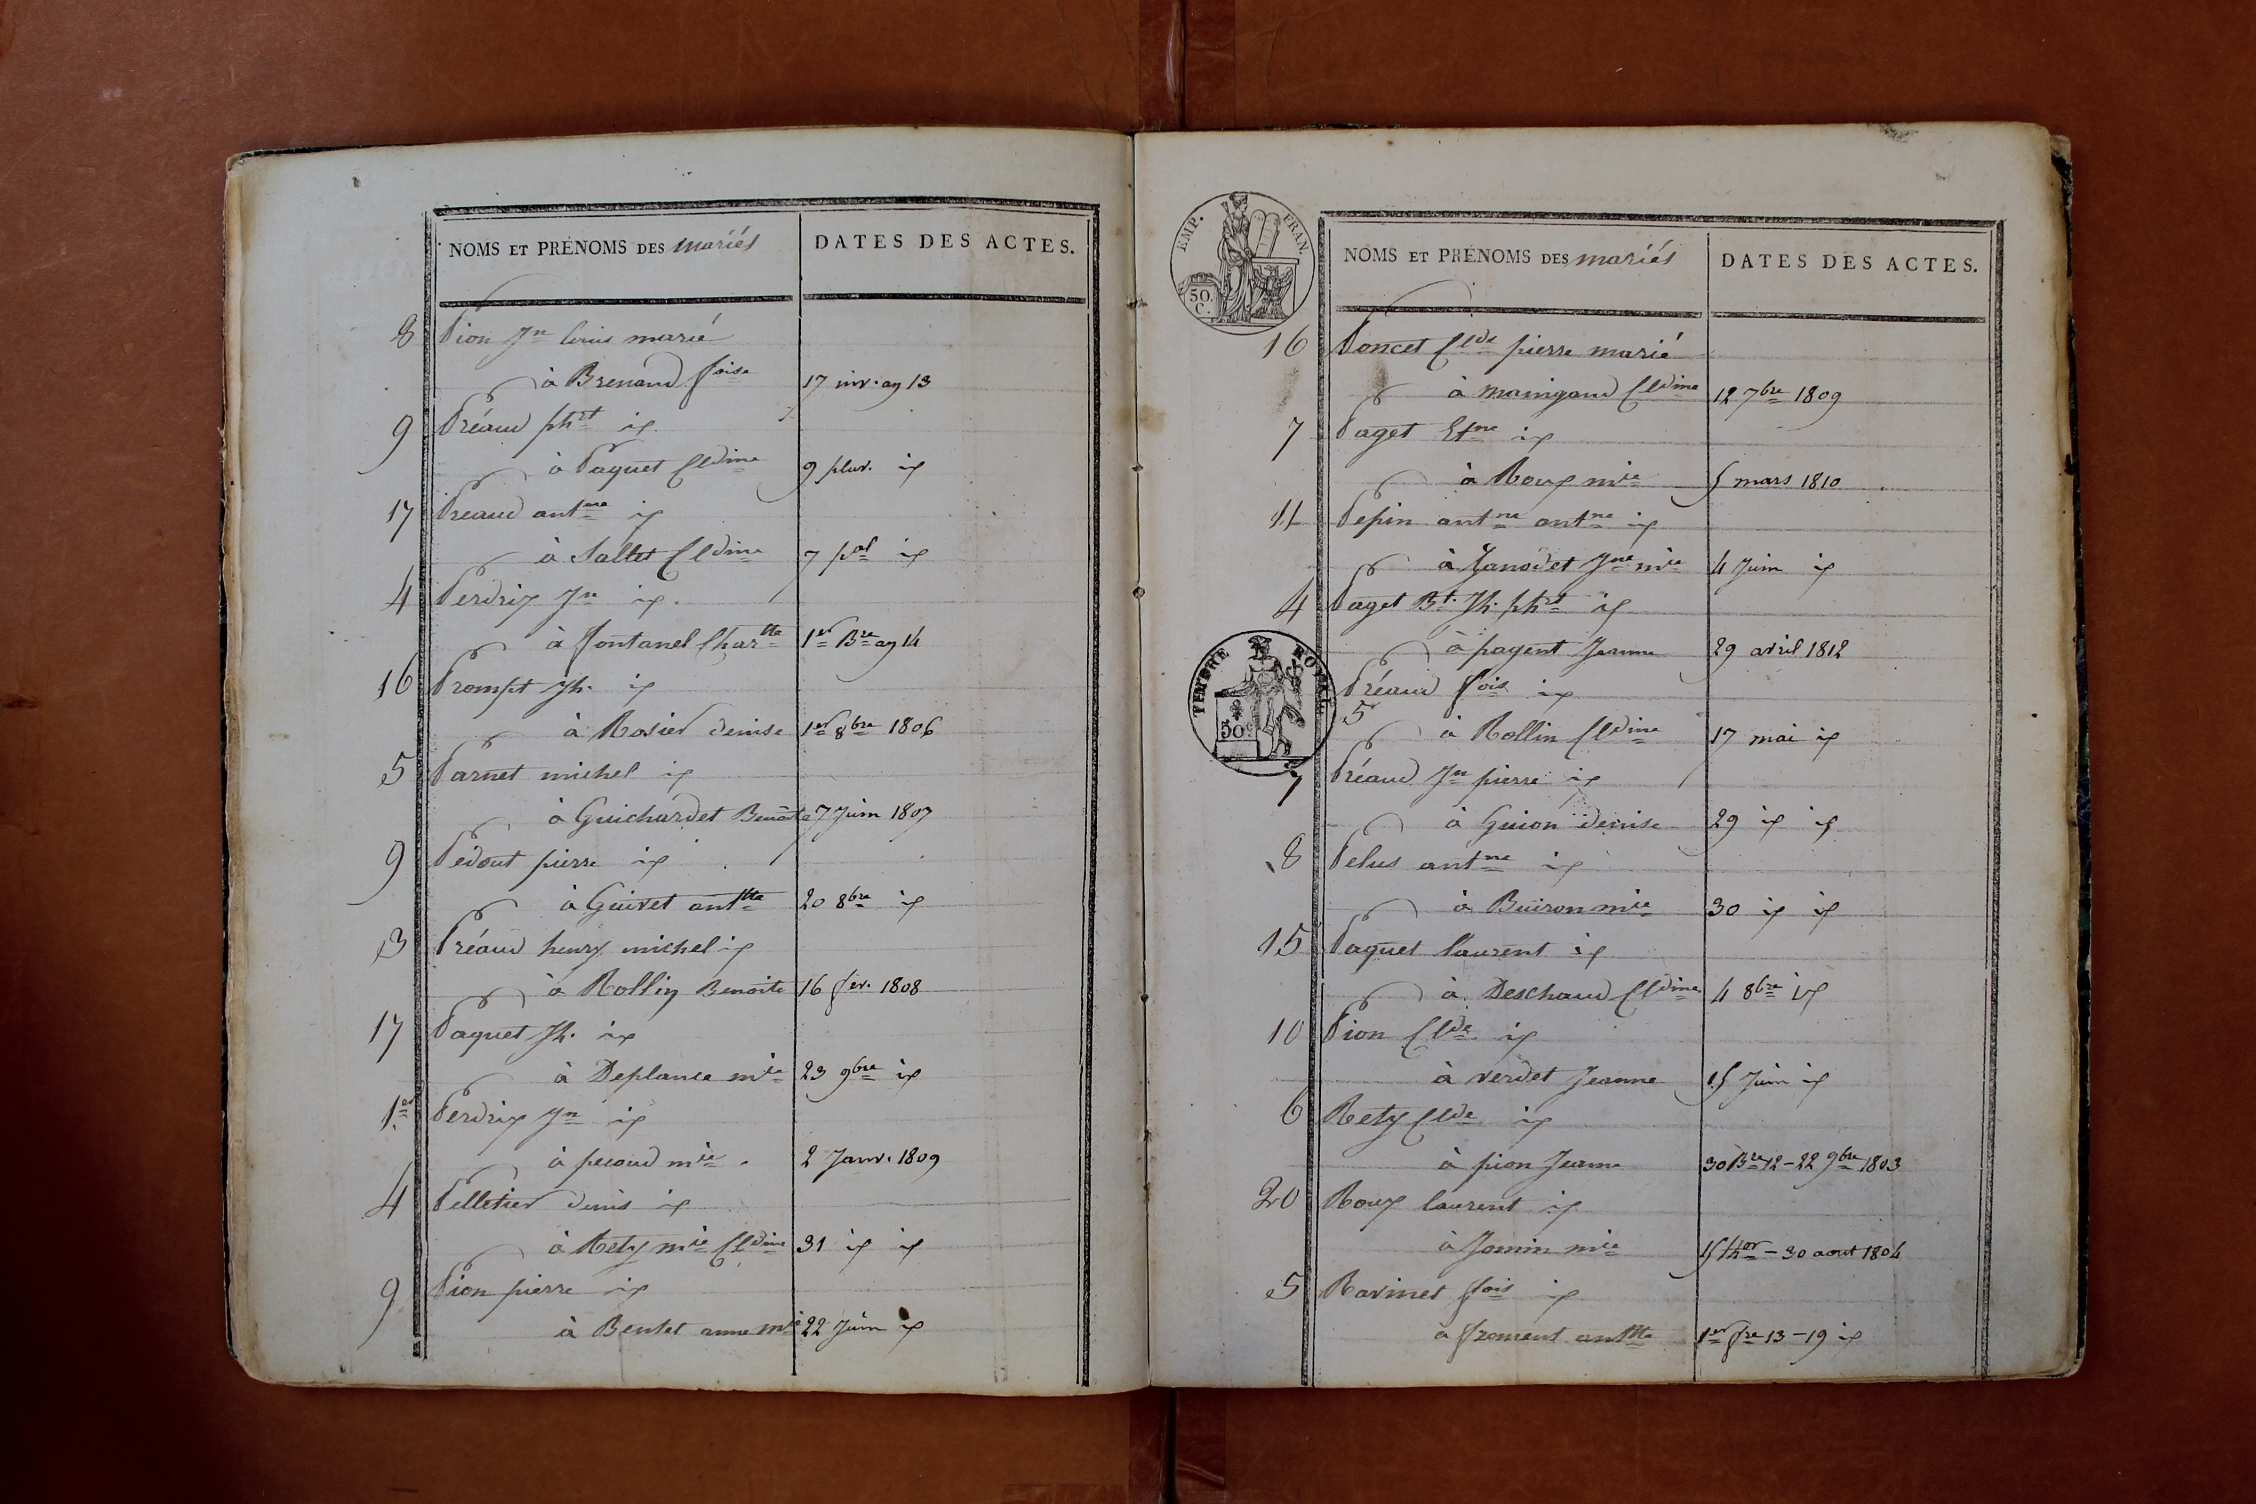 NOMS ET PRÉNOMS DES mariés DATES DES ACTES.
8 Pion Jn louis marié
à Brenaud foise 17 niv. an 13
9 Préaud phrt id
à Paquet Cldine 9 pluv. id
17 Preaud antne id
à Sallet Cldine 7 pal id
4 Perdrix Jn id.
à fontanel Chartte 1er Bre an 14
16 Prompt Jh. id
à Rosier denise 1er 8bre 1806
5 Parnet michel id
à Guichardet Benoite 7 Juin 1807
9 Pedout pierre id
à Guivet antte 20 8bre id
3 Préaud henry michel id
à Rollin Benoite 16 fév. 1808
17 Paquet Jh. id
à Deplance mie 23 9bre id
1er Perdrix Jn id
à pecoud mie. 2 Janv. 1809
4 Pelletier denis id
à Rety mie Cldine 31 id id
9 Pion pierre id
à Bentet anne mie 22 Juin id
EMP. FRAN.
50. C.
NOMS ET PRÉNOMS DES mariés DATES DES ACTES.
16 Poncet Clde pierre marié
à maingaud Cldine 12 7bre 1809
7 Paget Etne id
à Roux mie 5 mars 1810
11 Pepin antne antne id
à Janodet Jne mie 4 Juin id
4 Paget Bt. Jh. phrt id
à pagent Jeanne 29 avril 1812
TIMBRE ROYAL
50c
5 Préaud fois id
à Rollin Cldine 17 mai id
7 Préaud Jn pierre id
à Guion denise 29 id id
8 Pelus antne id
à Buiron mie 30 id id
15 Paquet laurent id
à Deschaud Cldine 4 8bre id
10 Pion Clde id
à verdet Jeanne 15 Juin id
6 Rety Clde id
à pion Jeanne 30 Bre 12 - 22 9bre 1803
20 Roux laurent id
à Jomin mie 15 thor - 30 aout 1804
5 Ravinet fois id
à froment antte 1er fre 13 - 19 id